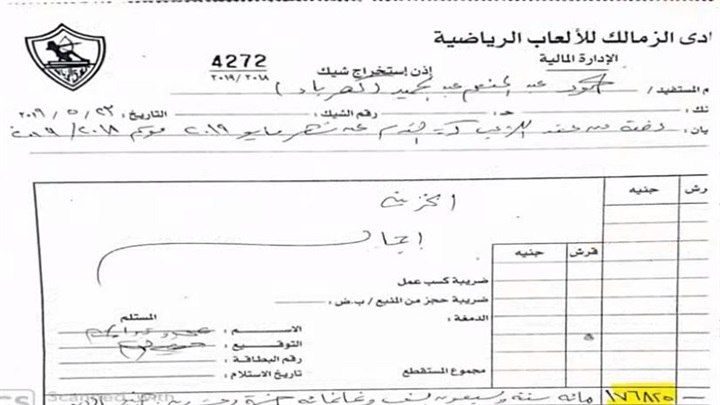 ادى الزمالك للألعاب الرياضية
الإدارة المالية
4272
٢٠١٩/٢٠١٨
إذن إستخراج شيك
م المستفيد / محمود عبد المنعم عبد الحميد (كهربا)
نك : د : رقم الشيك : التاريخ : ٢٣ / ٥ / ٢٠١٩
يان : دفعة من عقد اللاعب كرة القدم عن شهر مايو ٢٠١٩ موسم ٢٠١٨/٢٠١٩
رش جنيه
الخزينة
قرش جنيه
ضريبة كسب عمل
ضريبة حجز من المنبع / ب.ض :
الدمغة :
مجموع المستقطع
المستلم
الاسم :
التوقيع :
رقم البطاقة :
تاريخ الاستلام :
١٧٦٨٢٥ مائة ستة وسبعون ألف وثمانمائة خمسة وعشرون
Scanned with